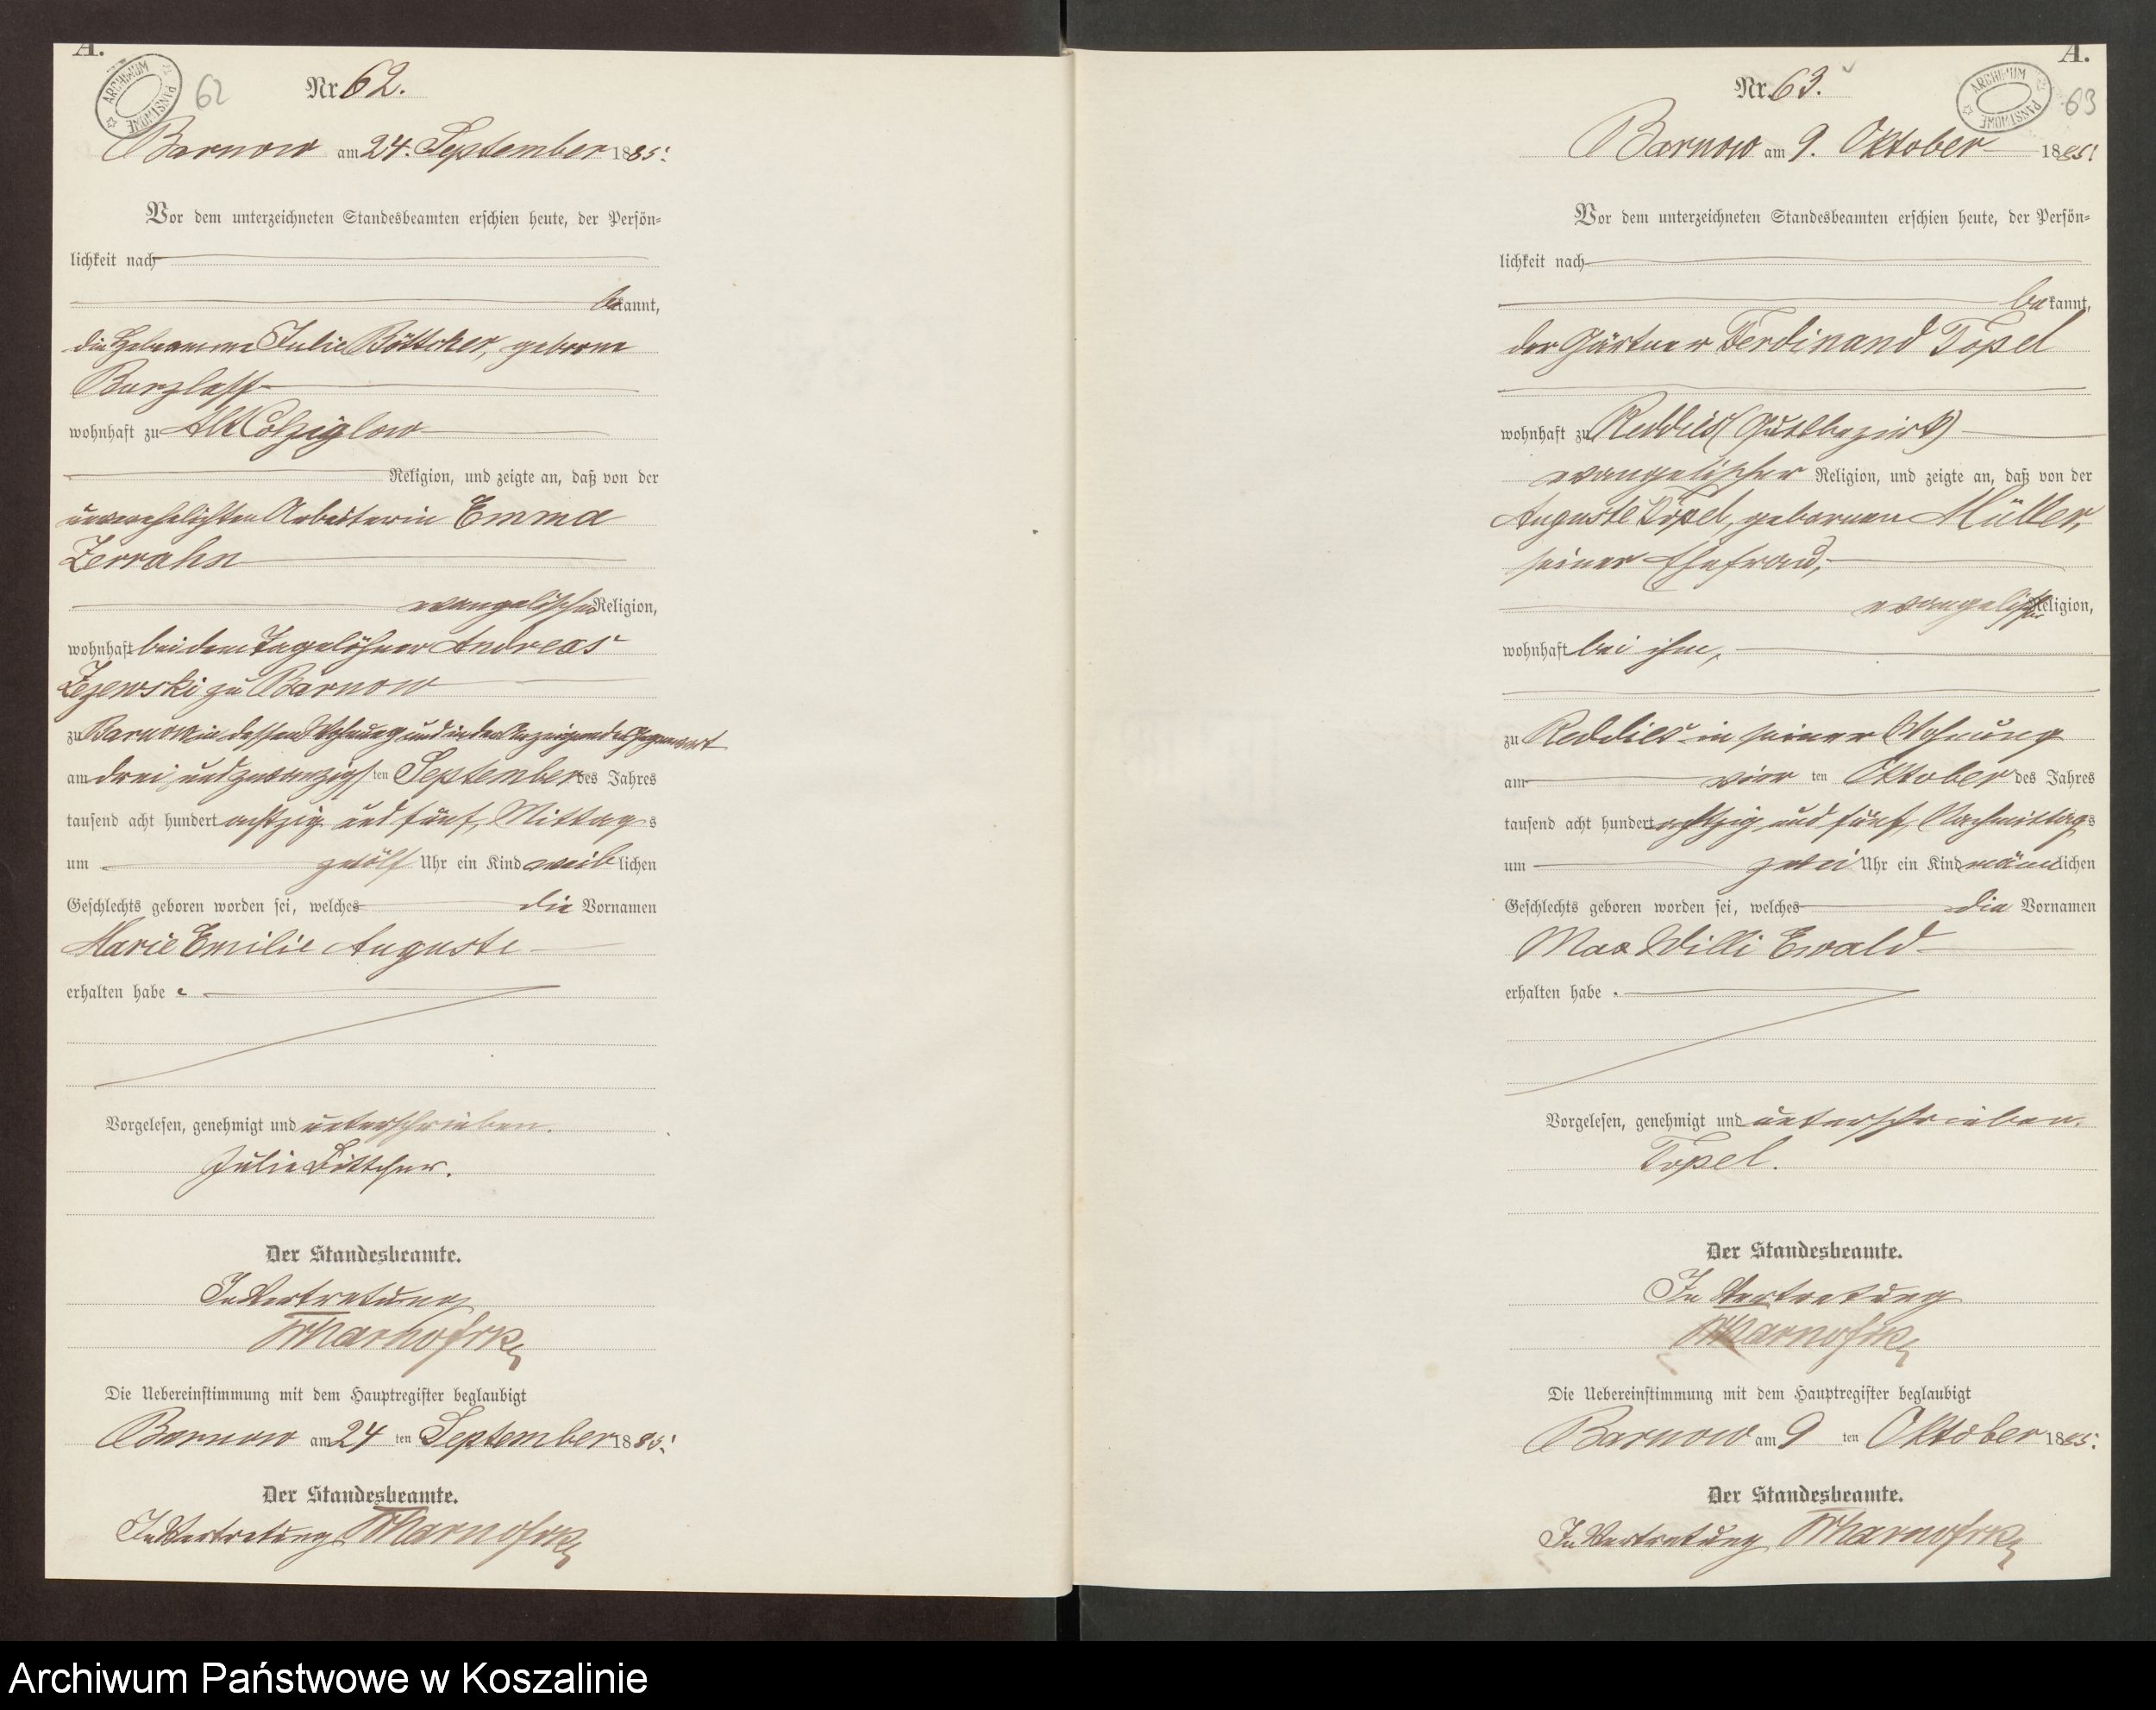 A.
ARCHIWUM PAŃSTWOWE
62
Nr 62.
Barnow am 24. September 1885.
Vor dem unterzeichneten Standesbeamten erschien heute, der Persön-
lichkeit nach
bekannt,
die Hebamme Julie Böttcher, geborne
Burzlaff
wohnhaft zu Alt Colziglow
Religion, und zeigte an, daß von der
unverehelichten Arbeiterin Emma
Zerrahn
evangelischer Religion,
wohnhaft bei dem Tagelöhner Andreas
zu Barnow
zu Barnow in dessen Wohnung und in der Anzeigenden Gegenwart
am drei und zwanzigsten September des Jahres
tausend acht hundert achtzig und fünf, Mittags
um zwölf Uhr ein Kind weiblichen
Geschlechts geboren worden sei, welches die Vornamen
Marie Emilie Auguste
erhalten habe.
Vorgelesen, genehmigt und unterschrieben.
Julie Böttcher.
Der Standesbeamte.
In Vertretung
Die Uebereinstimmung mit dem Hauptregister beglaubigt
Barnow am 24 ten September 1885.
Der Standesbeamte.
In Vertretung
A.
ARCHIWUM PAŃSTWOWE
63
Nr. 63.
Barnow am 9. Oktober 1885.
Vor dem unterzeichneten Standesbeamten erschien heute, der Persön-
lichkeit nach
bekannt,
der Gärtner Ferdinand Topel
wohnhaft zu Reddies (Gutsbezirk)
evangelischer Religion, und zeigte an, daß von der
Auguste Topel, gebornen Müller,
seiner Ehefrau,
evangelischer Religion,
wohnhaft bei ihm,
zu Reddies in seiner Wohnung
am vier ten Oktober des Jahres
tausend acht hundert achtzig und fünf, Nachmittags
um zwei Uhr ein Kind männlichen
Geschlechts geboren worden sei, welches die Vornamen
Max Willi Ewald
erhalten habe.
Vorgelesen, genehmigt und unterschrieben.
Topel.
Der Standesbeamte.
In Vertretung
Die Uebereinstimmung mit dem Hauptregister beglaubigt
Barnow am 9 ten Oktober 1885.
Der Standesbeamte.
In Vertretung
Archiwum Państwowe w Koszalinie